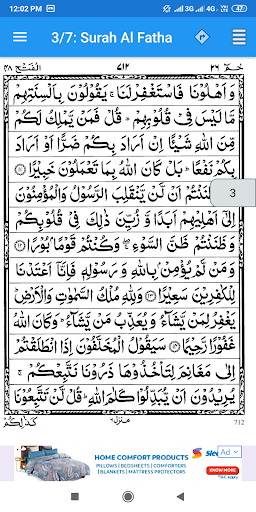 12:02 PM
3G 4G 47
3/7: Surah Al Fatha
الفتح ٤٨
٧١٢
حٰمٓ ٢٦
وَ اَهْلُوْنَا فَاسْتَغْفِرْ لَنَا ۚ يَقُوْلُوْنَ بِاَلْسِنَتِهِمْ
مَّا لَيْسَ فِیْ قُلُوْبِهِمْ ؕ قُلْ فَمَنْ یَّمْلِكُ لَكُمْ
مِّنَ اللّٰهِ شَیْـًٔا اِنْ اَرَادَ بِكُمْ ضَرًّا اَوْ اَرَادَ
بِكُمْ نَفْعًا ؕ بَلْ كَانَ اللّٰهُ بِمَا تَعْمَلُوْنَ خَبِیْرًا ۝۱۱
ظَنَنْتُمْ اَنْ لَّنْ یَّنْقَلِبَ الرَّسُوْلُ وَ الْمُؤْمِنُوْنَ
3
اِلٰۤی اَهْلِیْهِمْ اَبَدًا وَّ زُیِّنَ ذٰلِكَ فِیْ قُلُوْبِكُمْ
وَ ظَنَنْتُمْ ظَنَّ السَّوْءِ ۖۚ وَ كُنْتُمْ قَوْمًۢا بُوْرًا ۝۱۲
وَ مَنْ لَّمْ یُؤْمِنْۢ بِاللّٰهِ وَ رَسُوْلِهٖ فَاِنَّاۤ اَعْتَدْنَا
لِلْكٰفِرِیْنَ سَعِیْرًا ۝۱۳ وَ لِلّٰهِ مُلْكُ السَّمٰوٰتِ وَ الْاَرْضِ ؕ
یَغْفِرُ لِمَنْ یَّشَآءُ وَ یُعَذِّبُ مَنْ یَّشَآءُ ؕ وَ كَانَ اللّٰهُ
غَفُوْرًا رَّحِیْمًا ۝۱۴ سَیَقُوْلُ الْمُخَلَّفُوْنَ اِذَا انْطَلَقْتُمْ
اِلٰی مَغَانِمَ لِتَاْخُذُوْهَا ذَرُوْنَا نَتَّبِعْكُمْ ۚ
یُرِیْدُوْنَ اَنْ یُّبَدِّلُوْا كَلٰمَ اللّٰهِ ؕ قُلْ لَّنْ تَتَّبِعُوْنَا
كَذٰلِكُمْ
منزل ٦
712
HOME COMFORT PRODUCTS
PILLOWS | BEDSHEETS | COMFORTERS
| BLANKETS | MATTRESS PROTECTORS
Ad
KNOW MORE